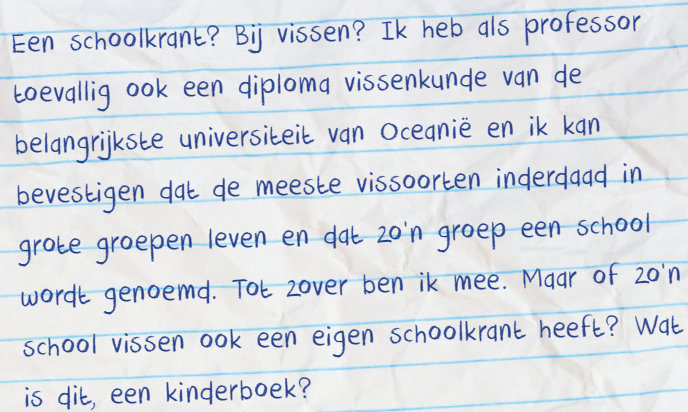 Een schoolkrant? Bij vissen? Ik heb als professor
toevallig ook een diploma vissenkunde van de
belangrijkste universiteit van Oceanië en ik kan
bevestigen dat de meeste vissoorten inderdaad in
grote groepen leven en dat zo'n groep een school
wordt genoemd. Tot zover ben ik mee. Maar of zo'n
school vissen ook een eigen schoolkrant heeft? Wat
is dit, een kinderboek?